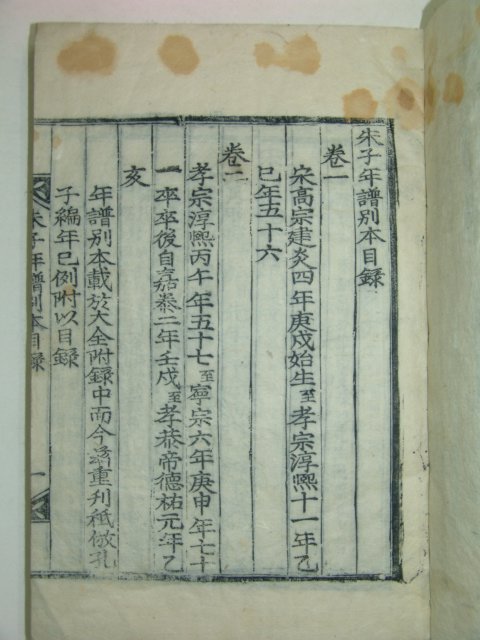 朱子年譜別本目録
卷一
宋高宗建炎四年庚戌始生至孝宗淳熙十一年乙
巳年五十六
卷二
孝宗淳熙丙午年五十七至寧宗六年庚申年七十
一卒卒後自嘉泰二年壬戌至孝恭帝德祐元年乙
亥
年譜別本載於大全附録中而今爲重刋秪倣孔
子編年已例附以目録
朱子年譜別本目録
一